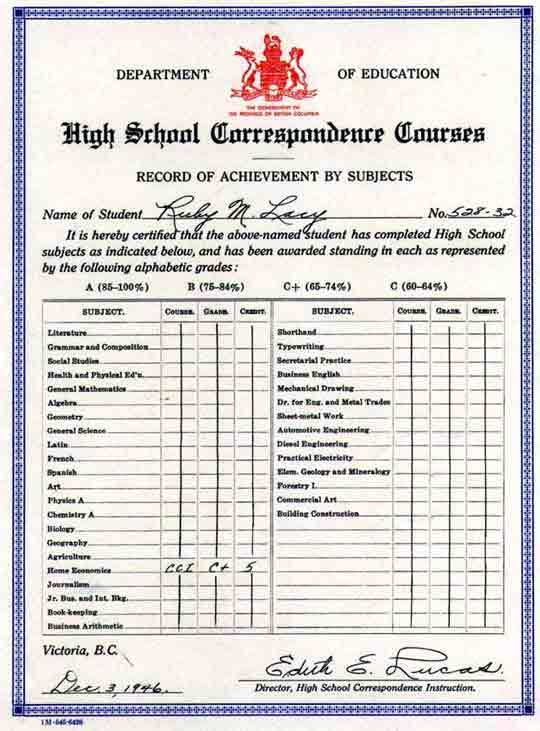 DEPARTMENT OF EDUCATION
THE GOVERNMENT OF
THE PROVINCE OF BRITISH COLUMBIA
High School Correspondence Courses
RECORD OF ACHIEVEMENT BY SUBJECTS
Name of Student Ruby M. Lacy No. 528-32
It is hereby certified that the above-named student has completed High School
subjects as indicated below, and has been awarded standing in each as represented
by the following alphabetic grades:
A (85-100%) B (75-84%) C+ (65-74%) C (60-64%)
SUBJECT. COURSE. GRADE. CREDIT. SUBJECT. COURSE. GRADE. CREDIT.
Literature Shorthand
Grammar and Composition Typewriting
Social Studies Secretarial Practice
Health and Physical Ed'n. Business English
General Mathematics Mechanical Drawing
Algebra Dr. for Eng. and Metal Trades
Geometry Sheet-metal Work
General Science Automotive Engineering
Latin Diesel Engineering
French Practical Electricity
Spanish Elem. Geology and Mineralogy
Art Forestry I.
Physics A Commercial Art
Chemistry A Building Construction
Biology
Geography
Agriculture
Home Economics CCI C+ 5
Journalism
Jr. Bus. and Int. Bkg.
Book-keeping
Business Arithmetic
Victoria, B.C.
Dec. 3, 1946.
Edith E. Lucas.
Director, High School Correspondence Instruction.
1M-645-6426